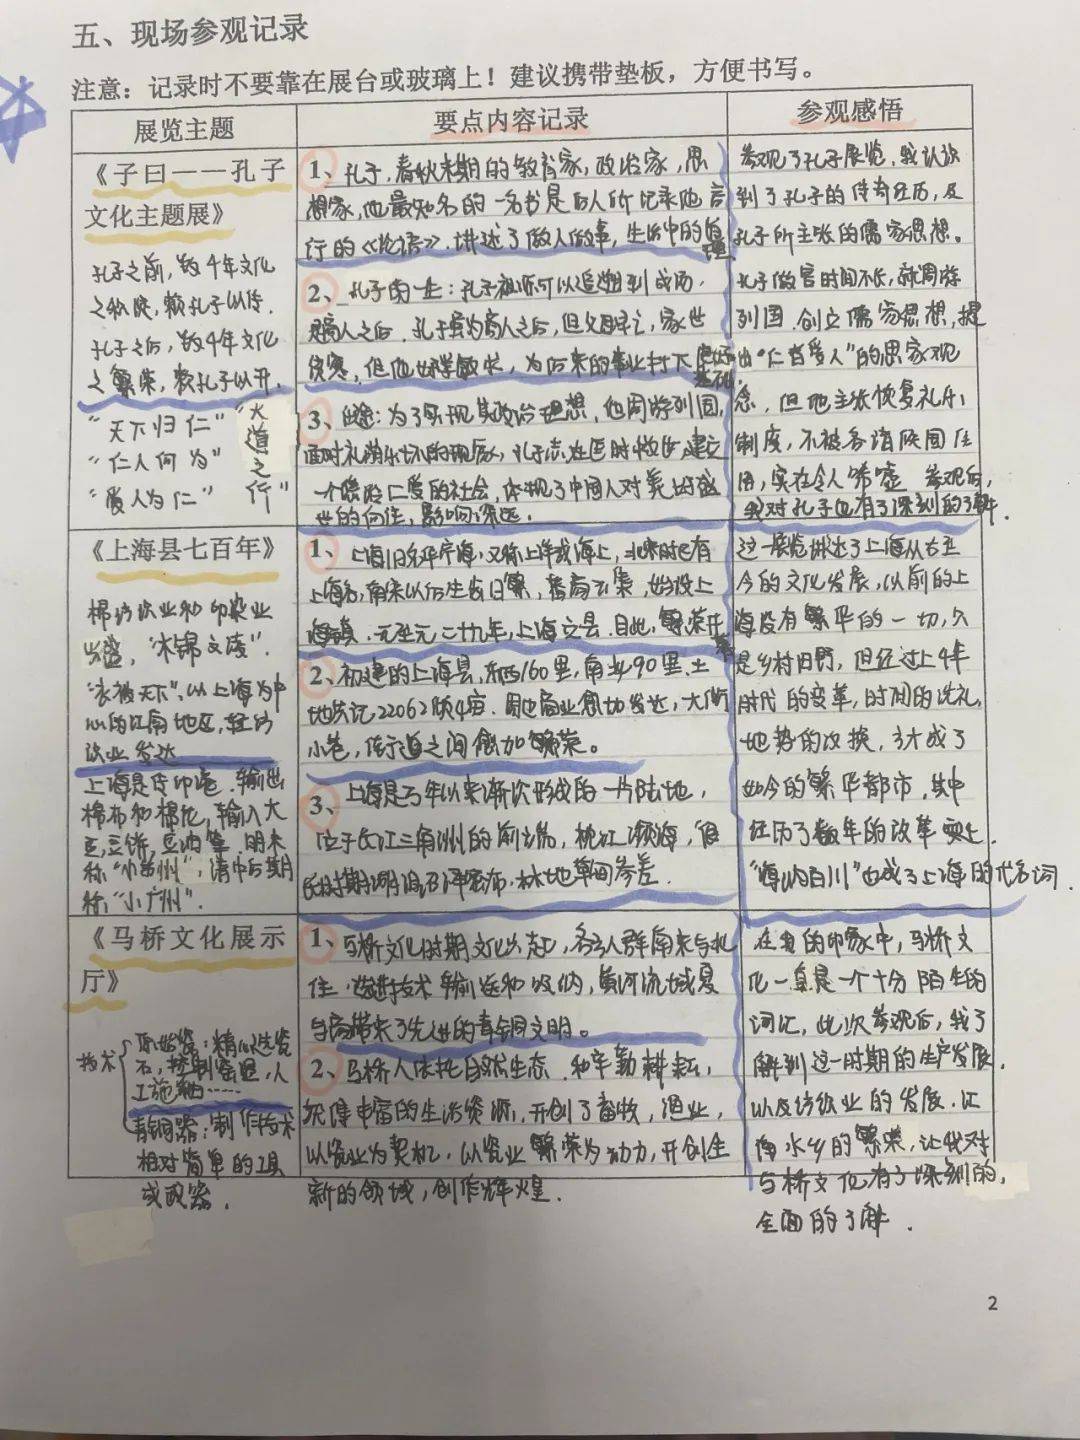 五、现场参观记录
注意：记录时不要靠在展台或玻璃上！建议携带垫板，方便书写。
展览主题
要点内容记录
参观感悟
《子曰——孔子
文化主题展》
孔子之前，数千年文化
之积淀，赖孔子以传．
孔子之后，数千年文化
之繁荣，赖孔子以开．
“天下归仁”
“仁人何为”
“爱人为仁”
“大道之行”
1、孔子，春秋末期的教育家，政治家，思
想家，他最知名的一名书是后人所记录他言
行的《论语》．讲述了做人做事，生活中的道理
2、孔子的一生：孔子祖源可以追溯到成汤．
是商人之后．孔子虽为商人之后，但父母早亡，家世
贫寒，但他好学敏求，为后来的事业打下良好基础．
3、仕途：为了实现其政治理想，他周游列国，
面对礼崩乐坏的现实，孔子志在匡时救世，建立
一个德治仁爱的社会，体现了中国人对美好盛
世的向往，影响深远．
参观了孔子展览，我认识
到了孔子的传奇经历，及
孔子所主张的儒家思想。
孔子做官时间不长，就周游
列国．创立儒家思想，提
出“仁者爱人”的思家观
念，但他主张恢复礼乐
制度，不被各诸侯国任
用，实在令人唏嘘．参观后，
我对孔子也有了深刻的了解．
《上海县七百年》
棉纺织业和印染业
兴盛，“木锦文凌”．
“衣被天下”，以上海为中
心的江南地区，轻纺
织业发达
上海是货印港．输出
棉布和棉花，输入大
豆，豆饼，豆油等．明末
称“小苏州”，清中后期
称“小广州”．
1、上海旧名华亭海，又称上洋或海上，北宋时已有
上海名，南宋以后生齿日繁，蕃商云集，始设上
海镇．元至元二十九年，上海立县．自此，繁荣开幕
2、初建的上海县，东西160里，南北90里．土
地共记22062顷4亩．县邑商业愈加发达，大街
小巷，街道之间愈加繁荣。
3、上海是万年以来渐次形成的一片陆地，
位于长江三角洲的前端，枕江濒海，很
长时期湖沼泽密布．林地草甸参差．
这一展览讲述了上海从古至
今的文化发展，以前的上
海没有繁华的一切，久
是乡村田野，但经过上千年
时代的变革，时间的洗礼，
地势的改换，才成了
如今的繁华都市．其中
经历了数年的改革变迁．
“海纳百川”也成了上海的代名词．
《马桥文化展示
厅》
技术
原始瓷：精心选瓷
石，控制窑温，人
工施釉……
青铜器：制作技术
相对简单的工具
或武器．
1、马桥文化时期文化兴起，各方人群南来与北
往．遂进技术输送和吸纳，黄河流域夏
与商带来了先进的青铜文明。
2、马桥人依托自然生态．和辛勤耕耘，
获得丰富的生活资源，开创了畜牧，渔业，
以瓷业为契机，以瓷业繁荣为动力，开创全
新的领域，创作辉煌．
在我的印象中，马桥文
化一直是一个十分陌生的
词汇，此次参观后，我了
解到这一时期的生产发展．
以及纺织业的发展．江
南水乡的繁荣．让我对
马桥文化有了深刻的，
全面的了解．
2